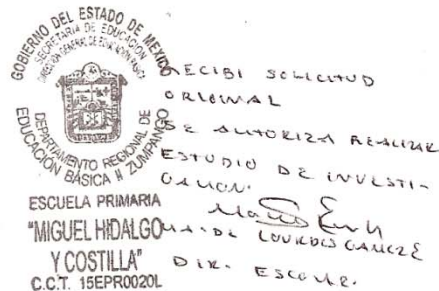 GOBIERNO DEL ESTADO DE MEXICO
SECRETARIA DE EDUCACION
DIRECCION GENERAL DE EDUCACION BASICA
DEPARTAMENTO REGIONAL DE
EDUCACIÓN BÁSICA II ZUMPANGO
ESCUELA PRIMARIA
"MIGUEL HIDALGO
Y COSTILLA"
C.C.T. 15EPR0020L
RECIBI SOLICITUD
ORIGINAL
SE AUTORIZA REALIZAR
ESTUDIO DE INVESTI-
GACION.
MA. DE LOURDES
DIR. ESCOLAR.